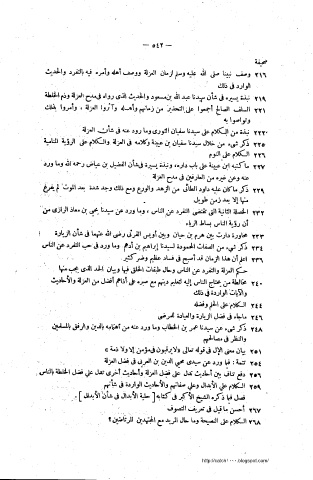 — ٥٤٢ —
صحيفة
٢١٦ وصف نبينا صلى الله عليه وسلم لزمان العزلة ووصف أهله وأمره فيه بالتفرد والحديث
فى ذلك
٢١٩ نبذة يسيرة فى شأن سيدنا عبد الله بن مسعود والحديث الذى رواه فى مدح العزلة وذم الخلطة
٢٢٠ السلف الصالح أجمعوا على التحذير من زمانهم وأهله وآثروا العزلة ، وأمروا بذلك
وتواصوا به
٢٢٠ نبذة من الكلام على سيدنا سفيان الثورى وما ورد عنه فى شأن العزلة
ذكر شىء من خلال سيدنا سفيان بن عيينة وكلامه فى العزلة والكلام على الرؤية المنامية
الكلام على النوم
ماكتبه ابن عيينة على باب داره، ونبذة يسيرة فى شأن الفضيل بن عياض رحمه الله وما ورد
عنه وعن غيره من العارفين فى مدح العزلة
٢٣٠ ذكر ماكان عليه داود الطائى من الزهد والورع ومع ذلك وجد شدة بعد الموت لم يفرغ
منها إلا بعد زمن طويل
٢٣٢ الخصلة الثانية التى تقتضى التفرد عن الناس ، وما ورد عن سيدنا يحيى بن معاذ الرازى من
أن رؤية الناس بساط الرياء
٢٣٣ محاورة دارت بين هرم بن حيان وبين أويس القرنى رضى الله عنهما فى شأن الزيارة
٢٣٤ ذكر شىء من الصفات المحمودة لسيدنا إبراهيم بن أدهم وما ورد فى حب التفرد عن الناس
٢٣٦ اعلم أن هذا الزمان قد أصبح فى فساد عظيم وضر كثير
حكم العزلة والتفرد عن الناس وحال طبقات الخلق فيها وبيان الحد الذى يجب منها
٢٤٠ مخالطة من محتاج الناس إليه لتعليم دينهم مع صبره على أذاهم أفضل من العزلة والأحاديث
والآيات الواردة فى ذلك
٢٤٤ الكلام على الحقد وفضله
ماجاء فى فضل الزيارة والعيادة للمرضى
٢٤٨ ذكر شىء عن سيدنا عمر بن الخطاب وما ورد عنه من اهتمامه بالدين والرفق بالمسلمين
والنظر فى مصالحهم
٢٥١ بيان معنى الإل فى قوله تعالى « لا يرقبون فى مؤمن إلا ولا ذمة »
تتمة : فيما ورد عن سيدى محيى الدين بن العربى فى فضل العزلة
٢٥٤ دفع تناف بين أحاديث تدل على فضل العزلة وأحاديث أخرى تدل على فضل الخلطة بالناس
٢٥٦ الكلام على الأبدال وعلى صفاتهم والأحاديث الواردة فى شأنهم
فصل فيما ذكره الشيخ الأكبر فى كتابه [ حلية الأبدال فى شأن الأبدال ] .
٢٦٧ أحسن ما قيل فى تعريف التصوف
٢٦٨ الكلام على النصيحة وما حال المريد مع المجتهدين المرتاضين ؟